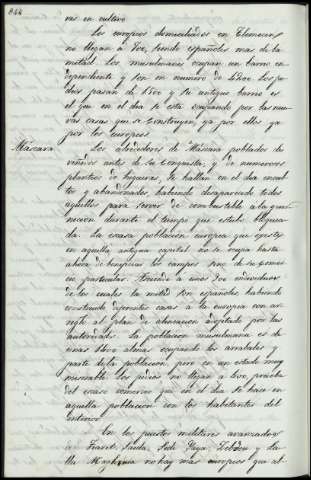 844
ras en cultivo.
Los europeos domiciliados en Tlemecen
no llegan á 800, siendo españoles mas de la
mitad. Los musulmanes ocupan un barrio in-
dependiente y son en numero de Los ju-
dios pasan de 1500 y su antiguo barrio es
el que en el dia se está ocupando por las nue-
vas casas que se construyen, ya por ellos ya
por los europeos.
Mascara Los alrededores de Mascara poblados de
viñedos antes de su conquista, y de numerosos
plantios de higueras, se hallan en el dia incul-
tos y abandonados, habiendo desaparecido todos
aquellos para servir de combustible á la guar-
nicion durante el tiempo que estuvo bloquea-
da. La escasa poblacion europea que existe
en aquella antigua capital no se ocupa hasta
ahora de beneficiar los campos sino de su comer-
cio particular. Asciende á unos 300 individuos
de los cuales la mitad son españoles, habiendo
construido diferentes casas á la europea con ar-
reglo al plan de alineacion adoptado por las
autoridades. La poblacion musulmana es de
unas almas ocupando los arrabales y
parte de la poblacion, pero en un estado muy
miserable. Los judios no llegan á 600, prueba
del escaso comercio que en el dia se hace en
aquella poblacion con los habitantes del
interior.
En los puestos militares avanzados
de Tiaret, Saida, Sidi Yaya, Zebdou y La-
lla Maghrnia no hay mas europeos que al-